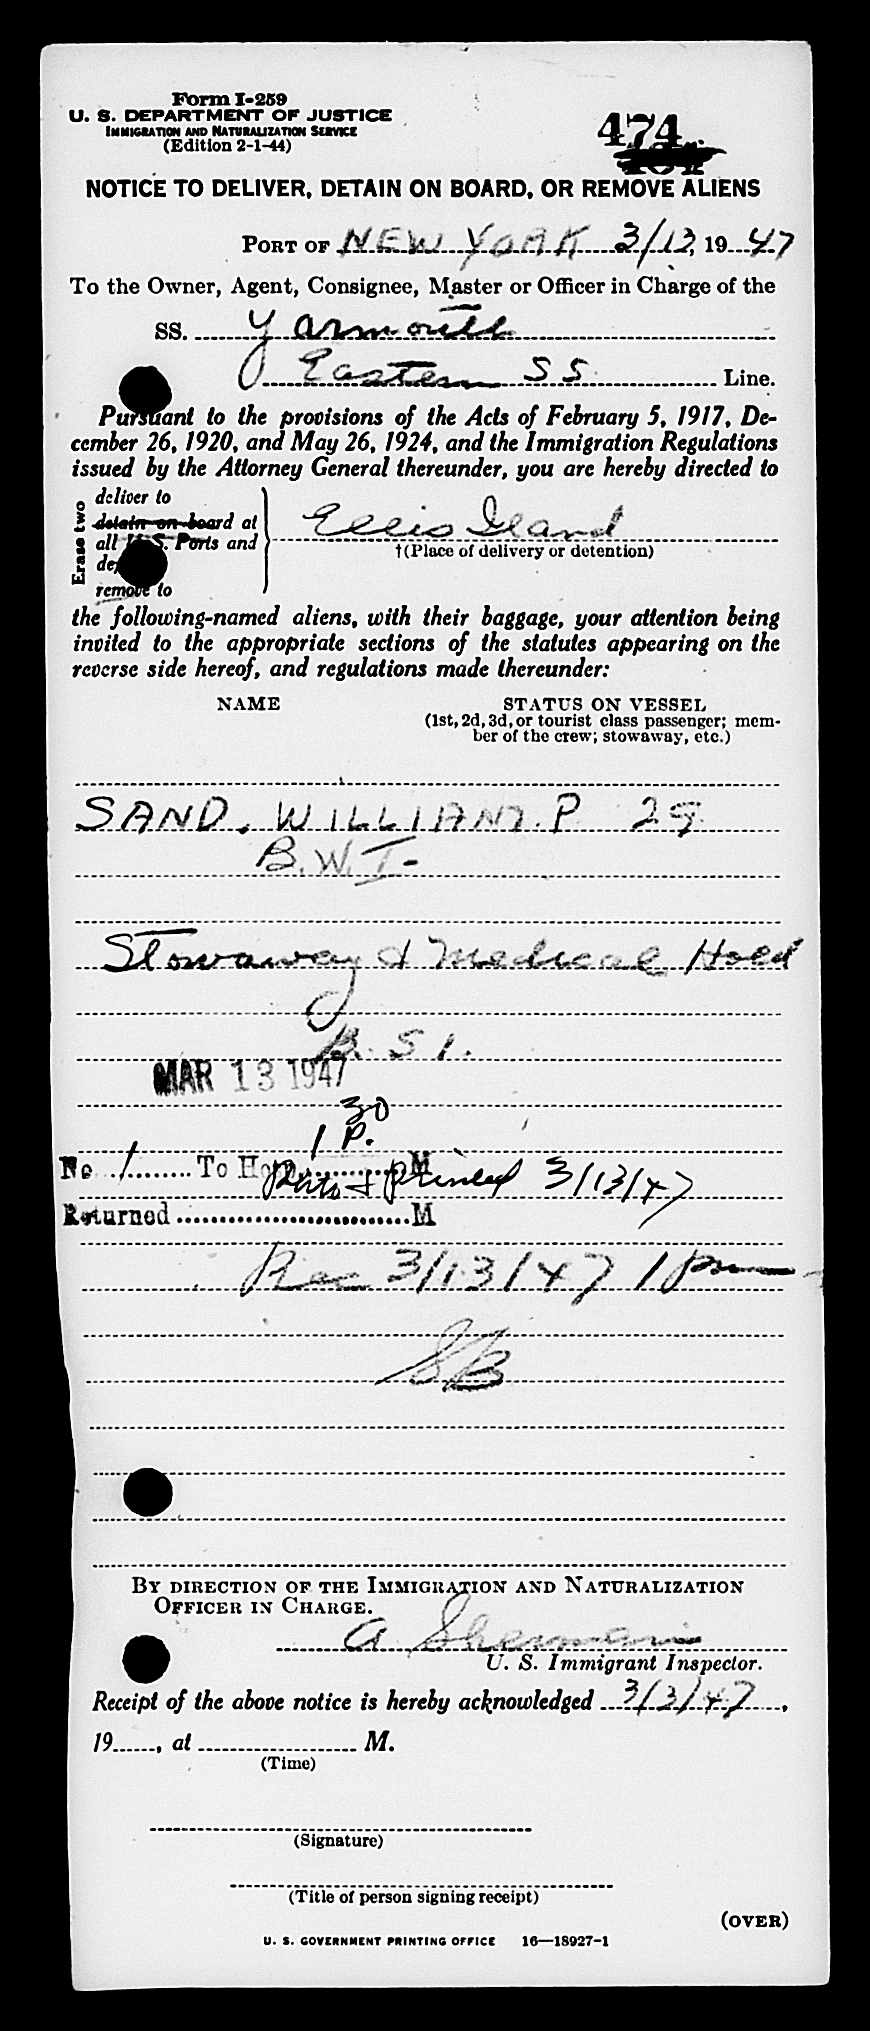 Form I-259
U. S. DEPARTMENT OF JUSTICE
IMMIGRATION AND NATURALIZATION SERVICE
(Edition 2-1-44)
474
NOTICE TO DELIVER, DETAIN ON BOARD, OR REMOVE ALIENS
PORT OF NEW YORK 3/13, 1947
To the Owner, Agent, Consignee, Master or Officer in Charge of the
SS. Yarmouth
Eastern SS Line.
Pursuant to the provisions of the Acts of February 5, 1917, De-
cember 26, 1920, and May 26, 1924, and the Immigration Regulations
issued by the Attorney General thereunder, you are hereby directed to
Erase two
deliver to
detain on board at
all U.S. Ports and
remove to
Ellis Iland
†(Place of delivery or detention)
the following-named aliens, with their baggage, your attention being
invited to the appropriate sections of the statutes appearing on the
reverse side hereof, and regulations made thereunder:
NAME STATUS ON VESSEL
(1st, 2d, 3d, or tourist class passenger; mem-
ber of the crew; stowaway, etc.)
SAND. WILLIAM. P 29
B.W.I.
Stowaway & Medical Hold
B.S.I.
MAR 13 1947
1 30 P.
No 1 To Hosp. M
Photo & Printed 3/13/47
Returned M
Rec 3/13/47 1 Pm
SB
BY DIRECTION OF THE IMMIGRATION AND NATURALIZATION
OFFICER IN CHARGE.
A. Sherman
U. S. Immigrant Inspector.
Receipt of the above notice is hereby acknowledged 3/13/47,
19......, at M.
(Time)
(Signature)
(Title of person signing receipt)
(OVER)
U. S. GOVERNMENT PRINTING OFFICE 16—18927-1